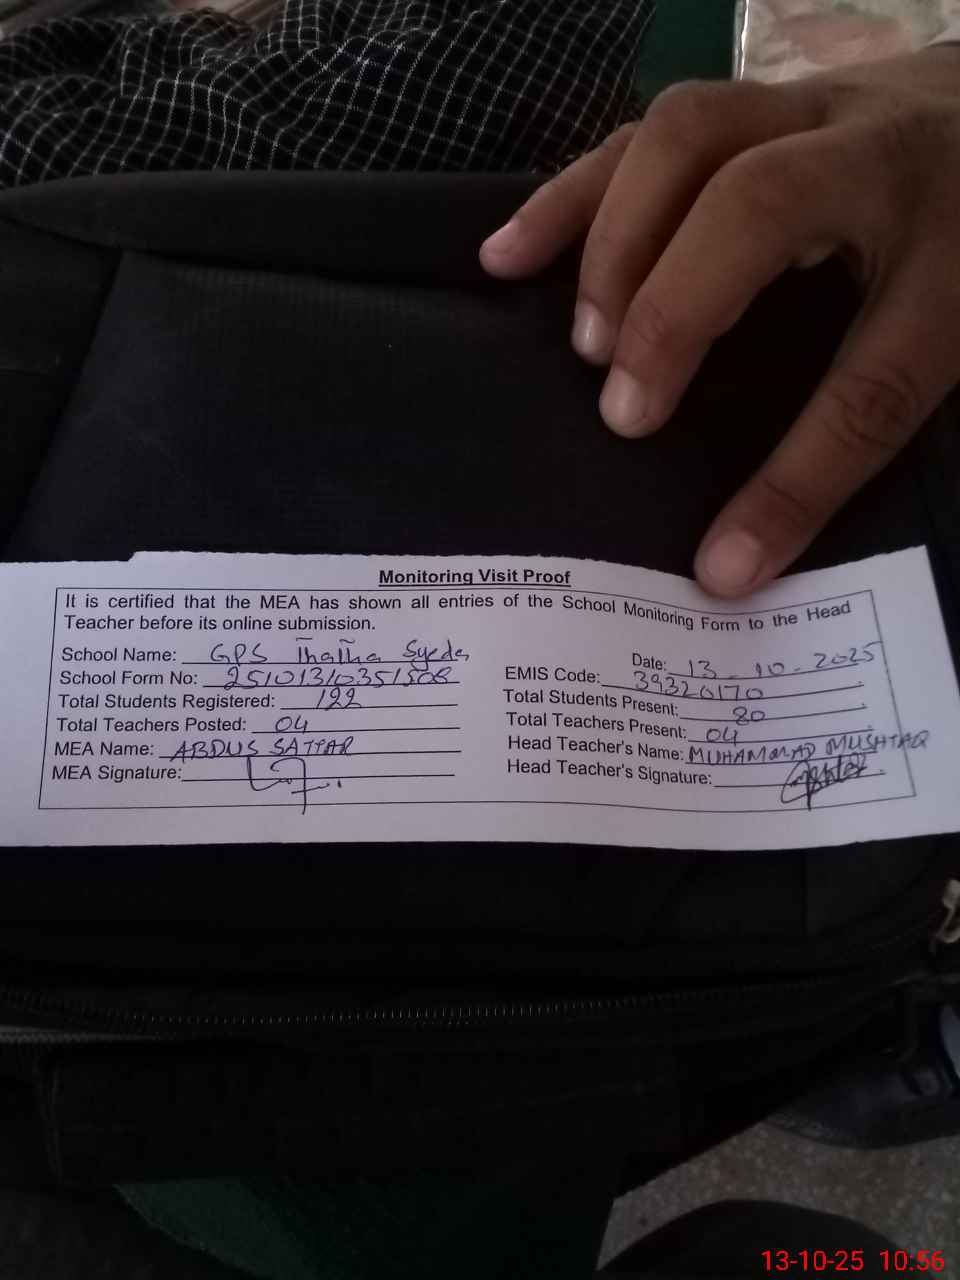 Monitoring Visit Proof
It is certified that the MEA has shown all entries of the School Monitoring Form to the Head
Teacher before its online submission.
School Name: GPS Thatha Syeda
Date: 13-10-2025
School Form No: 25101310351508
EMIS Code: 39320170
Total Students Registered: 122
Total Students Present: 80
Total Teachers Posted: 04
Total Teachers Present: 04
MEA Name: ABDUS SATTAR
Head Teacher's Name: MUHAMMAD MUSHTAQ
MEA Signature:
Head Teacher's Signature:
13-10-25 10:56